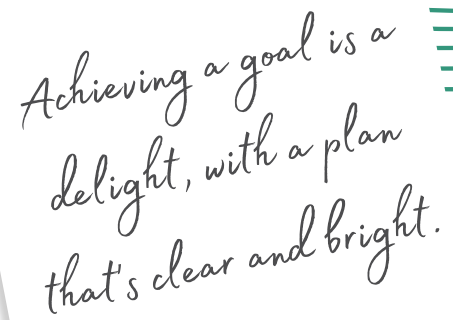 Achieving a goal is a
delight, with a plan
that's clear and bright.